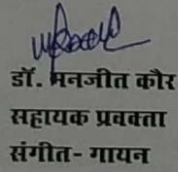 डॉ. मनजीत कौर
सहायक प्रवक्ता
संगीत- गायन